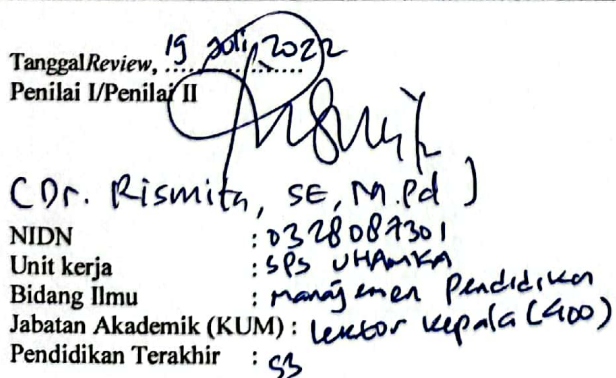 Tanggal Review, 19 Juli, 2022
Penilai I/Penilai II
(Dr. Rismita, SE, M.Pd)
NIDN : 0328087301
Unit kerja : SPS UHAMKA
Bidang Ilmu : Manajemen Pendidikan
Jabatan Akademik (KUM) : Lektor Kepala (400)
Pendidikan Terakhir : S3